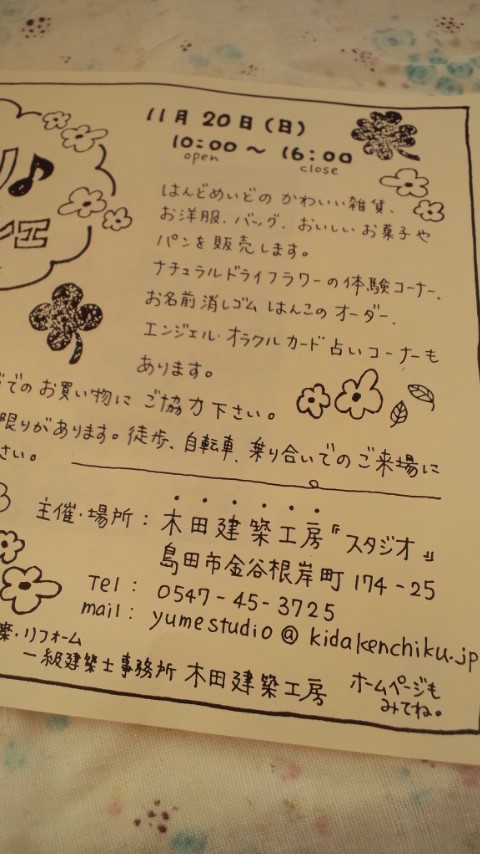 11月20日(日)
10:00～16:00
open close
♪
シェ
はんどめいどの かわいい雑貨、
お洋服、バッグ、おいしいお菓子や
パンを販売します。
ナチュラルドライフラワーの体験コーナー、
お名前消しゴムはんこのオーダー、
エンジェル・オラクルカード占いコーナーも
あります。
でのお買い物にご協力下さい。
限りがあります。徒歩、自転車、乗り合いでのご来場に
さい。
主催・場所：木田建築工房『スタジオ』
島田市金谷根岸町174-25
Tel： 0547-45-3725
mail： yumestudio@kidakenchiku.jp
築・リフォーム
一級建築士事務所 木田建築工房
ホームページも
みてね。